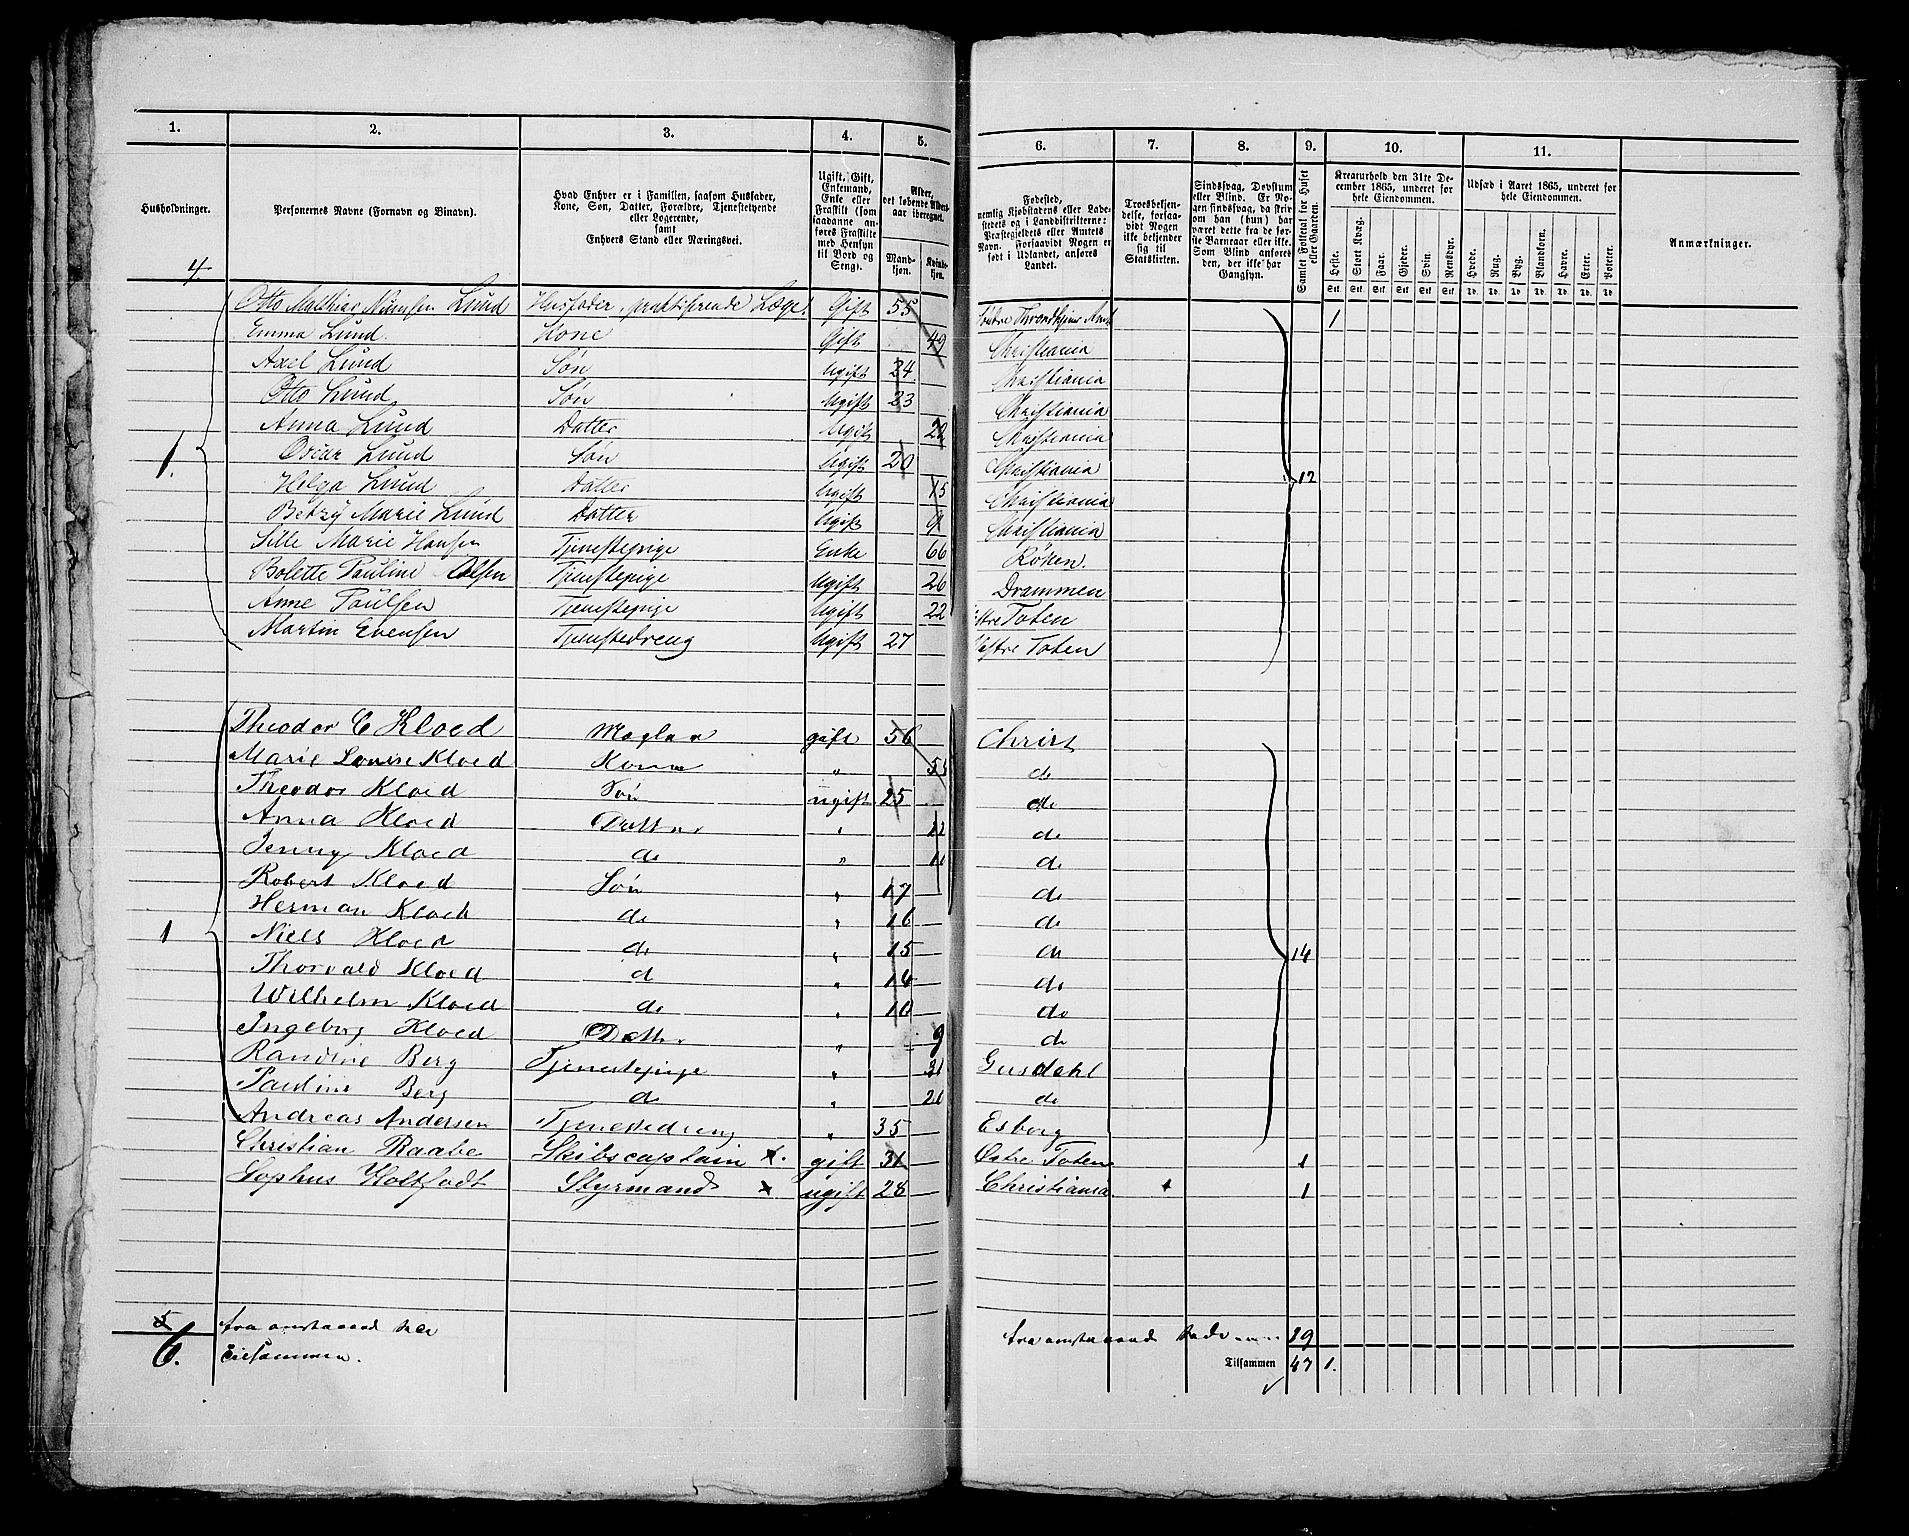 1. 2. 3. 4. 5. 6. 7. 8. 9. 10. 11.
Husholdninger.
Personernes Navne (Fornavn og Binavn).
Hvad Enhver er i Familien, saasom Husfader, Kone, Søn, Datter, Forældre, Tjenestetyende eller Logerende, samt Enhvers Stand eller Næringsvei.
Ugift, Gift, Enkemand, Enke eller Fraskilt (som saadanne anføres Fraskilte med Hensyn til Bord og Seng).
Alder, det løbende Alders-aar iberegnet.
Mandkjøn. Kvindekjøn.
Fødested, nemlig Kjøbstadens eller Ladestedets og i Landdistrikterne: Præstegjeldets eller Amtets Navn. Forsaavidt Nogen er født i Udlandet, anføres Landet.
Troesbekjendelse, forsaavidt Nogen ikke bekjender sig til Statskirken.
Sindssvag, Døvstum eller Blind. Er Nogen sindssvag, da skrives om han (hun) har været dette fra de første Barneaar eller ikke. Som Blind anføres den, der ikke har Gangsyn.
Samlet Folketal for Huset eller Gaarden.
Kreaturhold den 31te December 1865, underet for hele Eiendommen.
Heste. Stort Kvæg. Faar. Gjeder. Svin. Rensdyr.
Udsæd i Aaret 1865, underet for hele Eiendommen.
Hvede. Rug. Byg. Blandkorn. Havre. Erter. Poteter.
Anmærkninger.
Stk. Stk. Stk. Stk. Stk. Stk. Td. Td. Td. Td. Td. Td. Td.
4
Otto Matthias Lund Husfader, praktiserende Læge Gift 55 Søndre Throndhjems Amt 1
Emma Lund Kone Gift 49 Christiania
Axel Lund Søn Ugift 24 Christiania
Otto Lund Søn Ugift 23 Christiania
Anna Lund Datter Ugift 22 Christiania
1. Oscar Lund Søn Ugift 20 Christiania 12
Helga Lund Datter Ugift 15 Christiania
Betzy Marie Lund Datter Ugift 9 Christiania
Sille Marie Hansen Tjenestepige Enke 66 Röken.
Bolette Pauline Olsen Tjenestepige Ugift 26 Drammen
Anne Paulsen Tjenestepige Ugift 22 Toten
Martin Evensen Tjenestedreng Ugift 27 Vestre Toten
Theodor C Kloed Mægler gift 56 Christ
Marie Louise Kloed Kone " 53 do
Theodor Kloed Søn ugift 25 do
Anna Kloed Datter " 22 do
Jenny Kloed do " do
Robert Kloed Søn " 17 do
Herman Kloed do " 16 do
1 Niels Kloed do " 15 do 14
Thorvald Kloed d " 14 do
Wilhelm Kloed do " 10 do
Ingeborg Kloed Datter " 9 do
Randine Berg Tjenestepige " 31 Gusdahl
Pauline Berg d " do
Andreas Andersen Tjenestedreng " 35 Esborg
Christian Raabe Skibscaptain x. gift 31 Østre Toten 1
Sophus Holtfodt Styrmand x ugift 28 Christiania 1
5 fra omstaaend Side fra omstaaend Side 19
6. Tilsammen. Tilsammen 47 1.